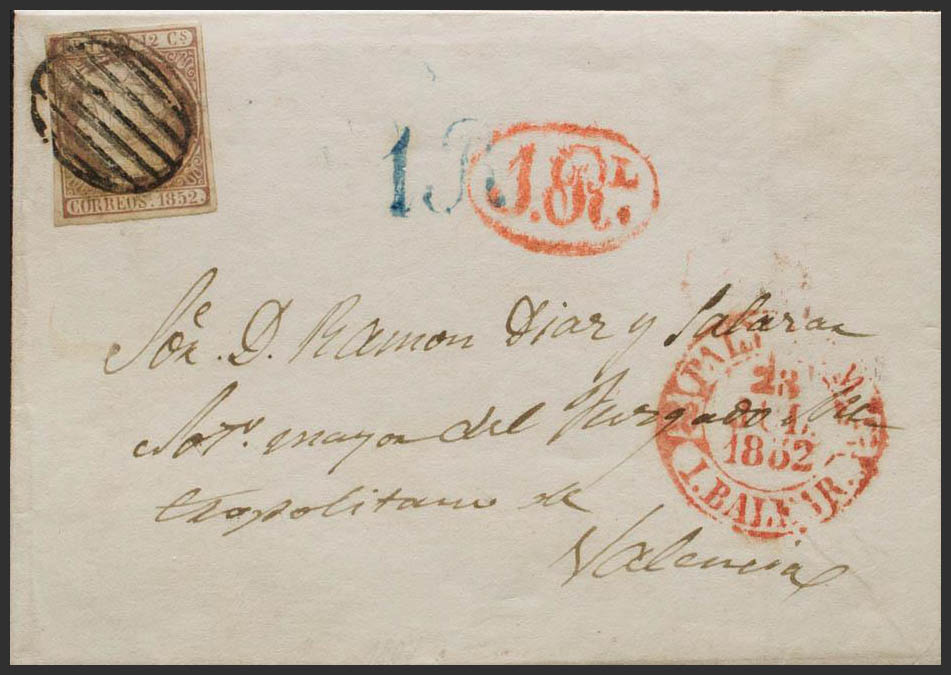 12 Cs
CORREOS. 1852.
1R
1.Rl.
Sor. D. Ramon Diaz y Salazar
Notº mayor del Juzgado Me
tropolitano de
Valencia
PAL
23
JUL
1852
I. BALEAR.